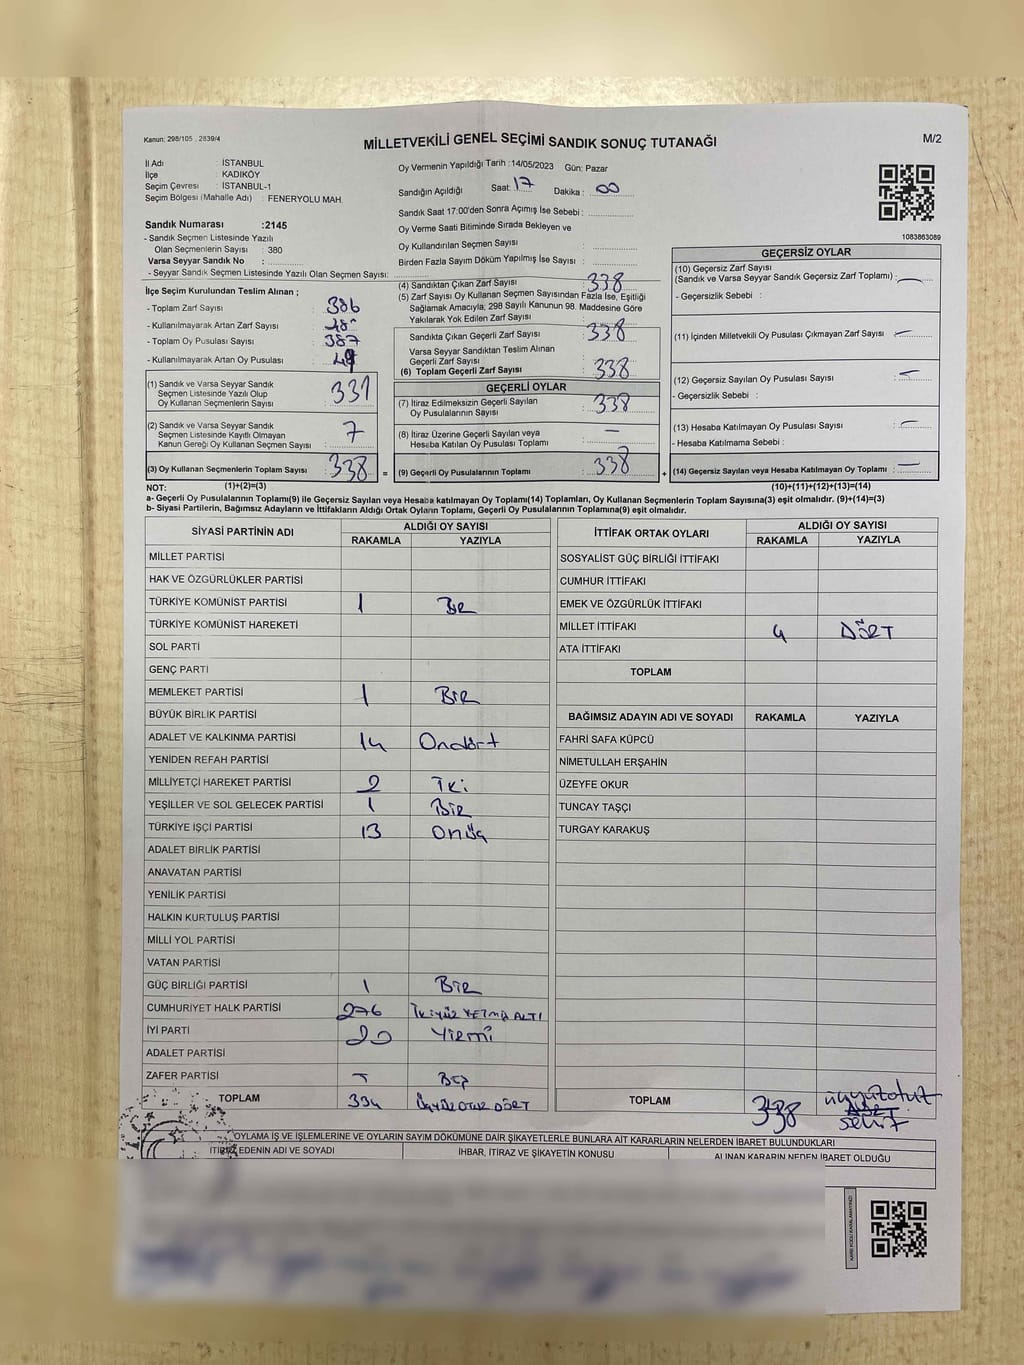 Kanun: 298/105 . 2839/4
MİLLETVEKİLİ GENEL SEÇİMİ SANDIK SONUÇ TUTANAĞI
M/2
İl Adı : İSTANBUL
İlçe : KADIKÖY
Seçim Çevresi : İSTANBUL-1
Seçim Bölgesi (Mahalle Adı) : FENERYOLU MAH.
Oy Vermenin Yapıldığı Tarih :14/05/2023 Gün: Pazar
Sandığın Açıldığı Saat: 17 Dakika : 00
Sandık Saat 17:00'den Sonra Açımış İse Sebebi :
Oy Verme Saati Bitiminde Sırada Bekleyen ve
Oy Kullandırılan Seçmen Sayısı :
Birden Fazla Sayım Döküm Yapılmış İse Sayısı :
Sandık Numarası :2145
- Sandık Seçmen Listesinde Yazılı
Olan Seçmenlerin Sayısı : 380
Varsa Seyyar Sandık No :
- Seyyar Sandık Seçmen Listesinde Yazılı Olan Seçmen Sayısı:
1083863089
İlçe Seçim Kurulundan Teslim Alınan ;
- Toplam Zarf Sayısı : 386
- Kullanılmayarak Artan Zarf Sayısı :
- Toplam Oy Pusulası Sayısı : 387
- Kullanılmayarak Artan Oy Pusulası :
(1) Sandık ve Varsa Seyyar Sandık
Seçmen Listesinde Yazılı Olup
Oy Kullanan Seçmenlerin Sayısı : 331
(2) Sandık ve Varsa Seyyar Sandık
Seçmen Listesinde Kayıtlı Olmayan
Kanun Gereği Oy Kullanan Seçmen Sayısı : 7
(3) Oy Kullanan Seçmenlerin Toplam Sayısı : 338 =
(4) Sandıktan Çıkan Zarf Sayısı : 338
(5) Zarf Sayısı Oy Kullanan Seçmen Sayısından Fazla İse, Eşitliği
Sağlamak Amacıyla, 298 Sayılı Kanunun 98. Maddesine Göre
Yakılarak Yok Edilen Zarf Sayısı :
Sandıkta Çıkan Geçerli Zarf Sayısı : 338
Varsa Seyyar Sandıktan Teslim Alınan
Geçerli Zarf Sayısı :
(6) Toplam Geçerli Zarf Sayısı : 338
GEÇERLİ OYLAR
(7) İtiraz Edilmeksizin Geçerli Sayılan
Oy Pusulalarının Sayısı : 338
(8) İtiraz Üzerine Geçerli Sayılan veya
Hesaba Katılan Oy Pusulası Toplamı : —
(9) Geçerli Oy Pusulalarının Toplamı : 338 +
GEÇERSİZ OYLAR
(10) Geçersiz Zarf Sayısı
(Sandık ve Varsa Seyyar Sandık Geçersiz Zarf Toplamı) : —
- Geçersizlik Sebebi :
(11) İçinden Milletvekili Oy Pusulası Çıkmayan Zarf Sayısı : —
(12) Geçersiz Sayılan Oy Pusulası Sayısı : —
- Geçersizlik Sebebi :
(13) Hesaba Katılmayan Oy Pusulası Sayısı : —
- Hesaba Katılmama Sebebi :
(14) Geçersiz Sayılan veya Hesaba Katılmayan Oy Pusulası Toplamı : —
NOT: (1)+(2)=(3) (10)+(11)+(12)+(13)=(14)
a- Geçerli Oy Pusulalarının Toplamı(9) ile Geçersiz Sayılan veya Hesaba katılmayan Oy Toplamı(14) Toplamları, Oy Kullanan Seçmenlerin Toplam Sayısına(3) eşit olmalıdır. (9)+(14)=(3)
b- Siyasi Partilerin, Bağımsız Adayların ve İttifakların Aldığı Ortak Oyların Toplamı, Geçerli Oy Pusulalarının Toplamına(9) eşit olmalıdır.
SİYASİ PARTİNİN ADI ALDIĞI OY SAYISI
RAKAMLA YAZIYLA
MİLLET PARTİSİ
HAK VE ÖZGÜRLÜKLER PARTİSİ
TÜRKİYE KOMÜNİST PARTİSİ 1 BİR
TÜRKİYE KOMÜNİST HAREKETİ
SOL PARTİ
GENÇ PARTI
MEMLEKET PARTİSİ 1 BİR
BÜYÜK BİRLİK PARTİSİ
ADALET VE KALKINMA PARTİSİ 14 Ondört
YENİDEN REFAH PARTİSİ
MİLLİYETÇİ HAREKET PARTİSİ 2 İki
YEŞİLLER VE SOL GELECEK PARTİSİ 1 BİR
TÜRKİYE İŞÇİ PARTİSİ 13 Onüç
ADALET BİRLİK PARTİSİ
ANAVATAN PARTİSİ
YENİLİK PARTİSİ
HALKIN KURTULUŞ PARTİSİ
MİLLİ YOL PARTİSİ
VATAN PARTİSİ
GÜÇ BİRLİĞI PARTİSİ 1 BİR
CUMHURİYET HALK PARTİSİ 276 İKİYÜZ YETMİŞ ALTI
İYİ PARTİ 20 YİRMİ
ADALET PARTİSİ
ZAFER PARTİSİ 5 BEŞ
TOPLAM 334 ÜÇYÜZ OTUZ DÖRT
İTTİFAK ORTAK OYLARI ALDIĞI OY SAYISI
RAKAMLA YAZIYLA
SOSYALİST GÜÇ BİRLİĞİ İTTİFAKI
CUMHUR İTTİFAKI
EMEK VE ÖZGÜRLÜK İTTİFAKI
MİLLET İTTİFAKI 4 DÖRT
ATA İTTİFAKI
TOPLAM
BAĞIMSIZ ADAYIN ADI VE SOYADI RAKAMLA YAZIYLA
FAHRİ SAFA KÜPCÜ
NİMETULLAH ERŞAHİN
ÜZEYFE OKUR
TUNCAY TAŞÇI
TURGAY KARAKUŞ
TOPLAM 338 üçyüzotuz
sekiz
OYLAMA İŞ VE İŞLEMLERİNE VE OYLARIN SAYIM DÖKÜMÜNE DAİR ŞİKAYETLERLE BUNLARA AİT KARARLARIN NELERDEN İBARET BULUNDUKLARI
İTİRAZ EDENİN ADI VE SOYADI İHBAR, İTİRAZ VE ŞİKAYETİN KONUSU ALINAN KARARIN NEDEN İBARET OLDUĞU